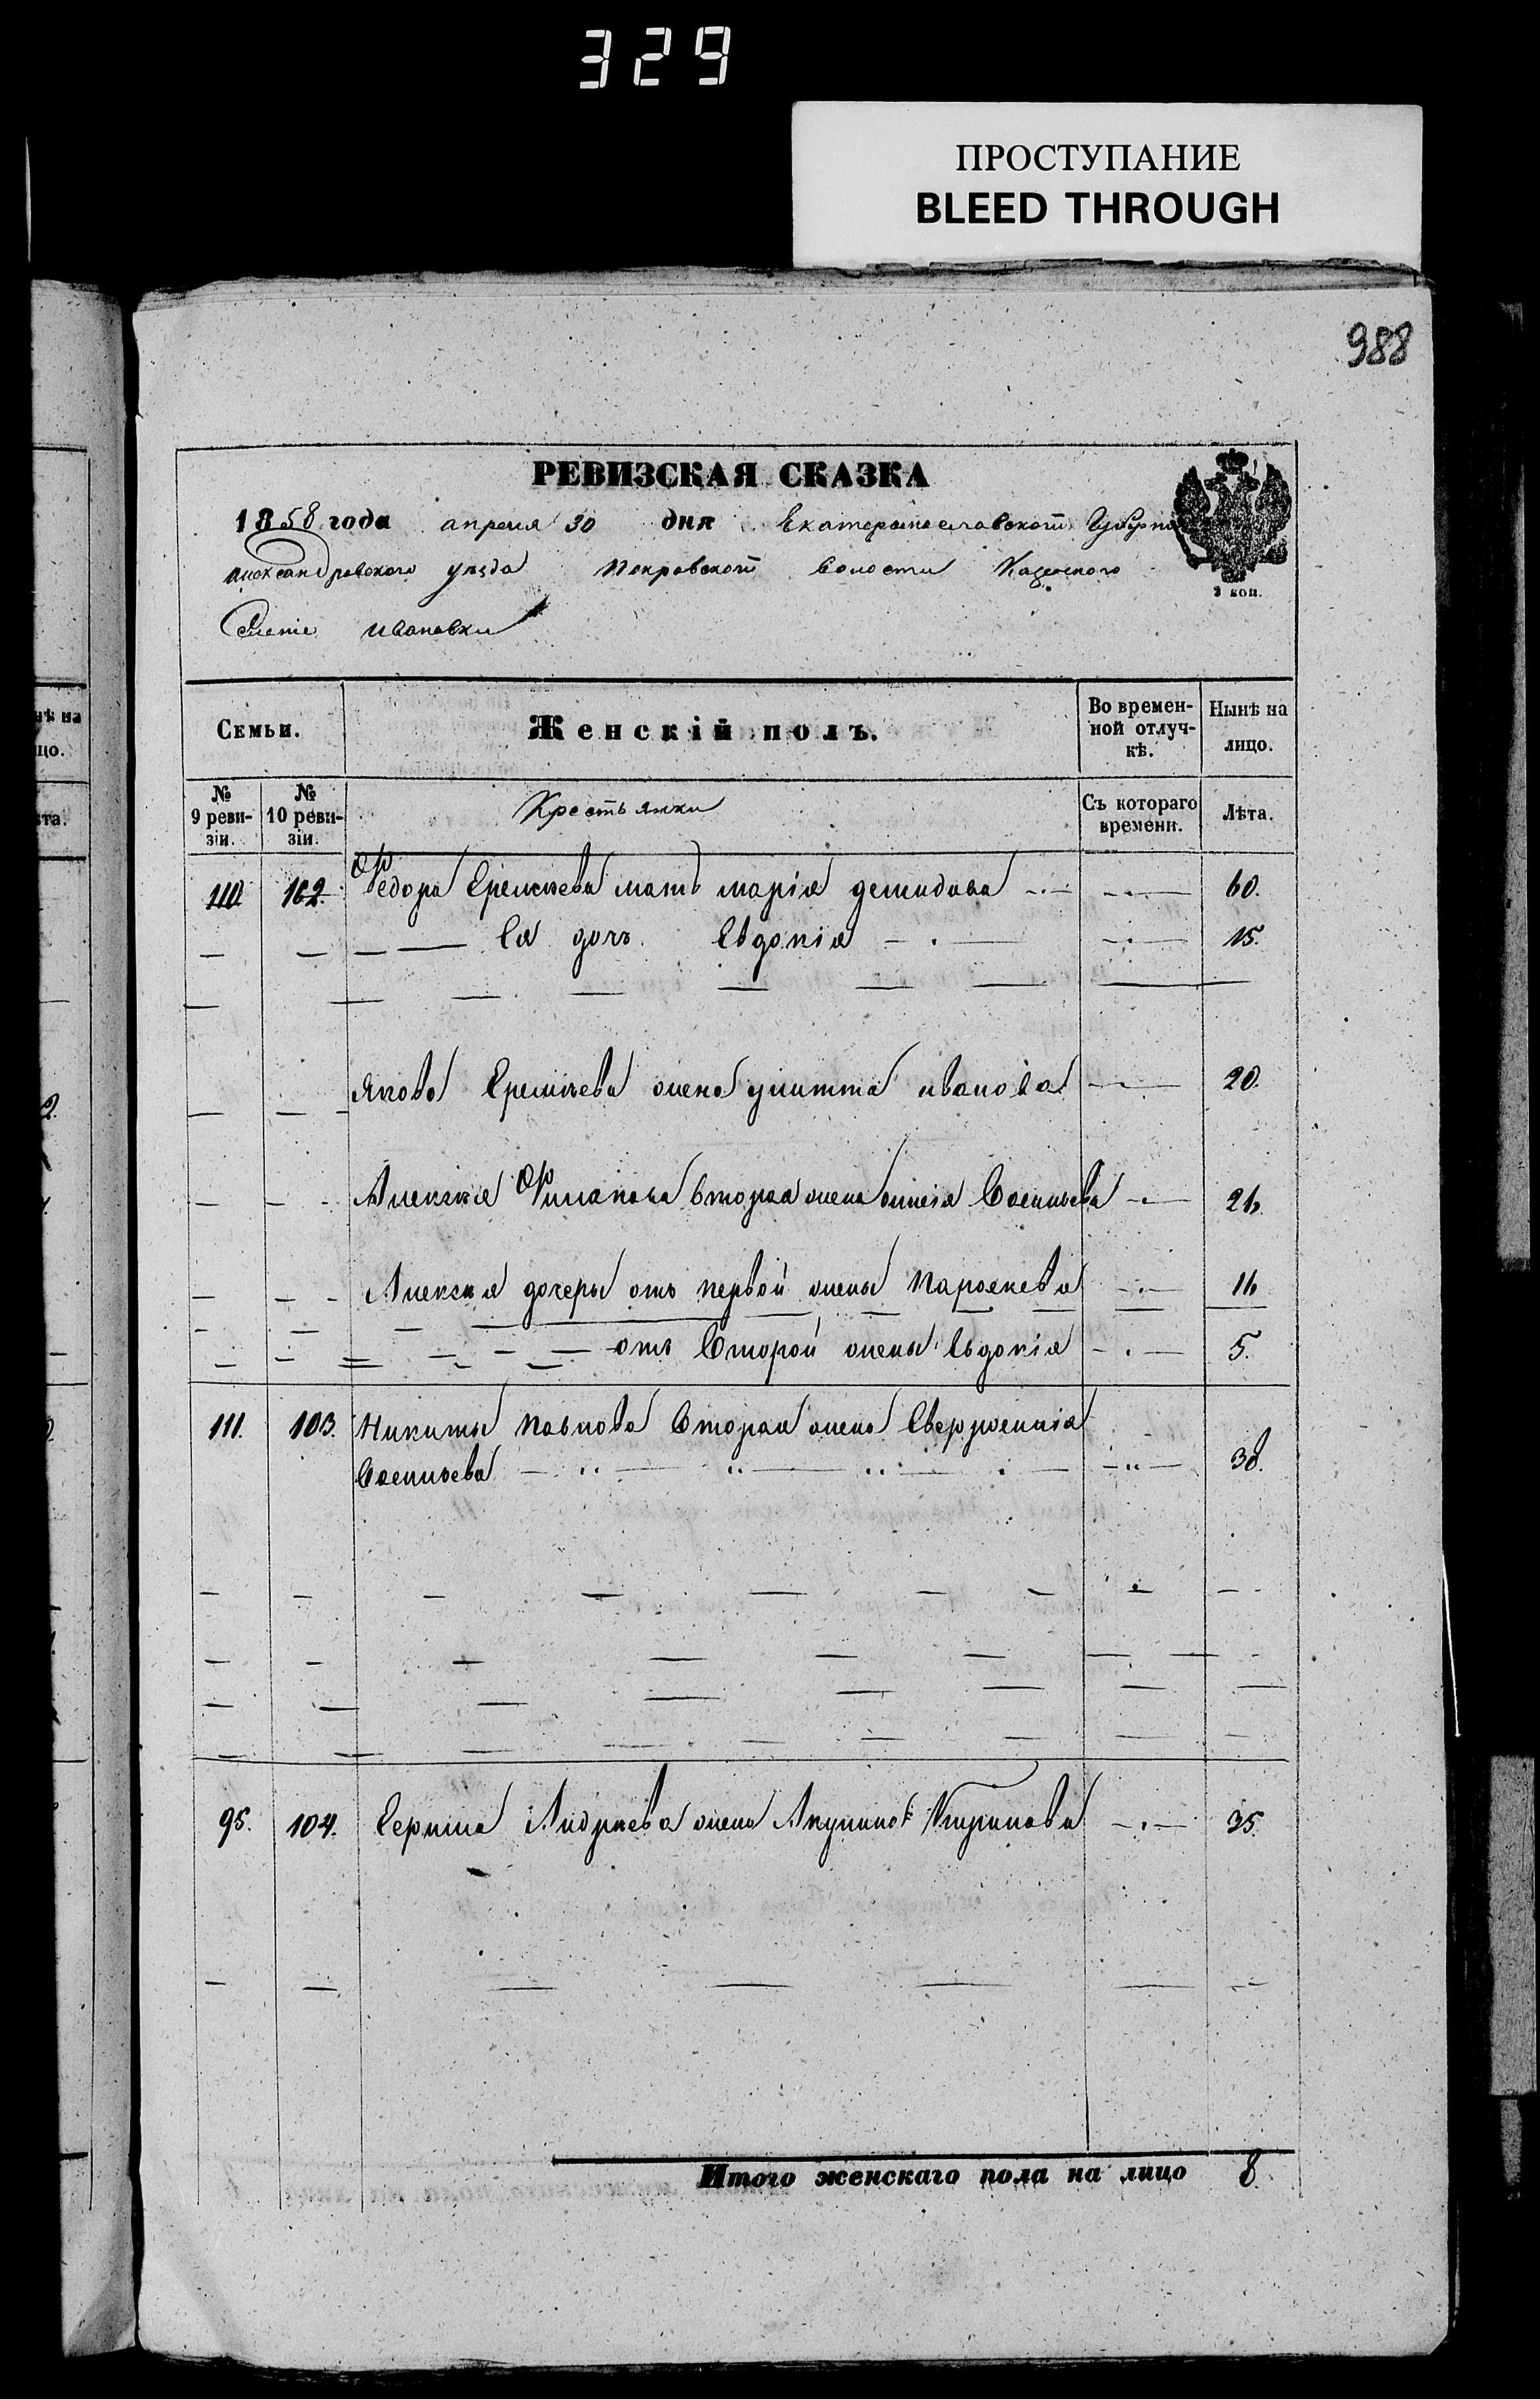 329
ПРОСТУПАНИЕ
BLEED THROUGH
988
РЕВИЗСКАЯ СКАЗКА
1858 года апреля 30 дня Екатеринославской Губерніи
Александровского уезда Покровской волости Казенного
Селенія Ивановки
3 коп.
Семьи.
Женскій полъ.
Во временной отлучкѣ.
Нынѣ на лицо.
№ 9 ревизіи.
№ 10 ревизіи.
Крестьянки
Съ котораго времени.
Лѣта.
110. 102. Федора Еремѣева мать марія демидова 60.
Ея дочь Евдокія 15.
Якова Еремѣева жена улитта иванова 20.
Алексѣя Филатова вторая жена Васильева 26.
Алексѣя дочеры отъ первой жены Параскева 16
отъ Второй жены Евдокія 5.
111. 103. Никиты Павлова Вторая жена
Васильева 38.
95. 104. Андреева жена Акулина 35.
Итого женскаго пола на лицо 8.